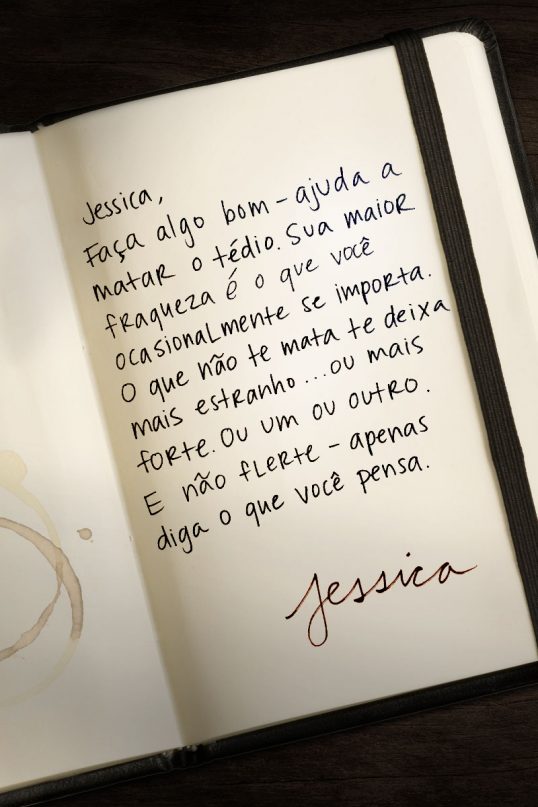 Jessica,
Faça algo bom - ajuda a
matar o tédio. Sua maior
fraqueza é o que você
ocasionalmente se importa.
O que não te mata te deixa
mais estranho... ou mais
forte. Ou um ou outro.
E não flerte - apenas
diga o que você pensa.
Jessica